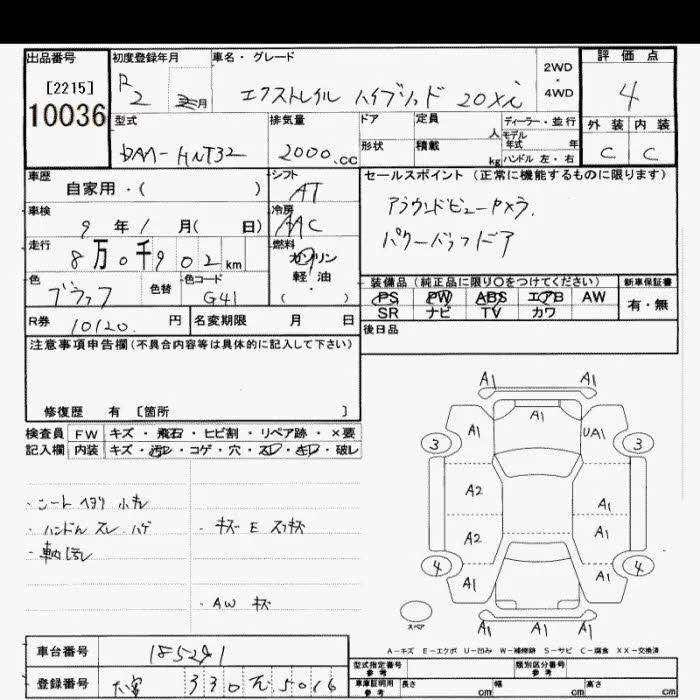 出品番号
[2215]
10036
初度登録年月
R
2
月
車名・グレード
エクストレイル ハイブリッド 20Xi
2WD
・
4WD
評価点
4
外装 内装
C C
型式
DAA-HNT32
排気量
2000.cc
ドア
形状
定員
人
積載
kg
ディーラー・並行
モデル
年式 年
ハンドル 左・右
車歴
自家用・( )
シフト
AT
セールスポイント (正常に機能するものに限ります)
アラウンドビューカメラ.
パワーバックドア
車検
9 年 1 月( 日)
冷房
AAC
走行
8万0千902km
燃料
ガソリン
軽・油
・
( )
色
ブラック
色替
色コード
G41
装備品 (純正品に限り〇をつけてください)
PS PW ABS エアB AW
SR ナビ TV カワ
新車保証書
有・無
R券
10120.円
名変期限 月 日
後日品
注意事項申告欄(不具合内容等は具体的に記入して下さい)
修復歴 有 [箇所 ]
検査員 FW キズ・飛石・ヒビ割・リペア跡・×要
記入欄 内装 キズ・汚レ・コゲ・穴・スレ・キレ・破レ
・シート ヘタリ 小キレ
・ハンドル スレ.ハゲ
・キズ E スリキズ
・AW キズ
A1 A1
A1
A1 UA1
3 3
A2 A1
A2 A1
4 4
A1 A1
A1 A1 A1
スペア
A-キズ E-エクボ U-凹み W-補修跡 S-サビ C-腐食 XX-交換済
車台番号
185291
登録番号
大宮 330 た 5016
型式指定番号
参考
類別区分番号
参考
車庫証明用
参考
長さ cm
幅 cm
高さ cm